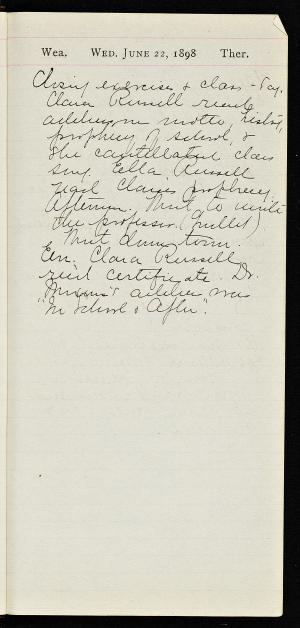 Wea. WED. JUNE 22, 1898 Ther.
Closing exercises & class-day.
Clara Russell read
address on motto, history,
prophecy of school, &
She class
song. Ella Russell
read Class prophecy.
Afternn. Went to
the professor
Went down town.
Eve. Clara Russell
rec'd certificate. Dr.
address was
"In School & After".